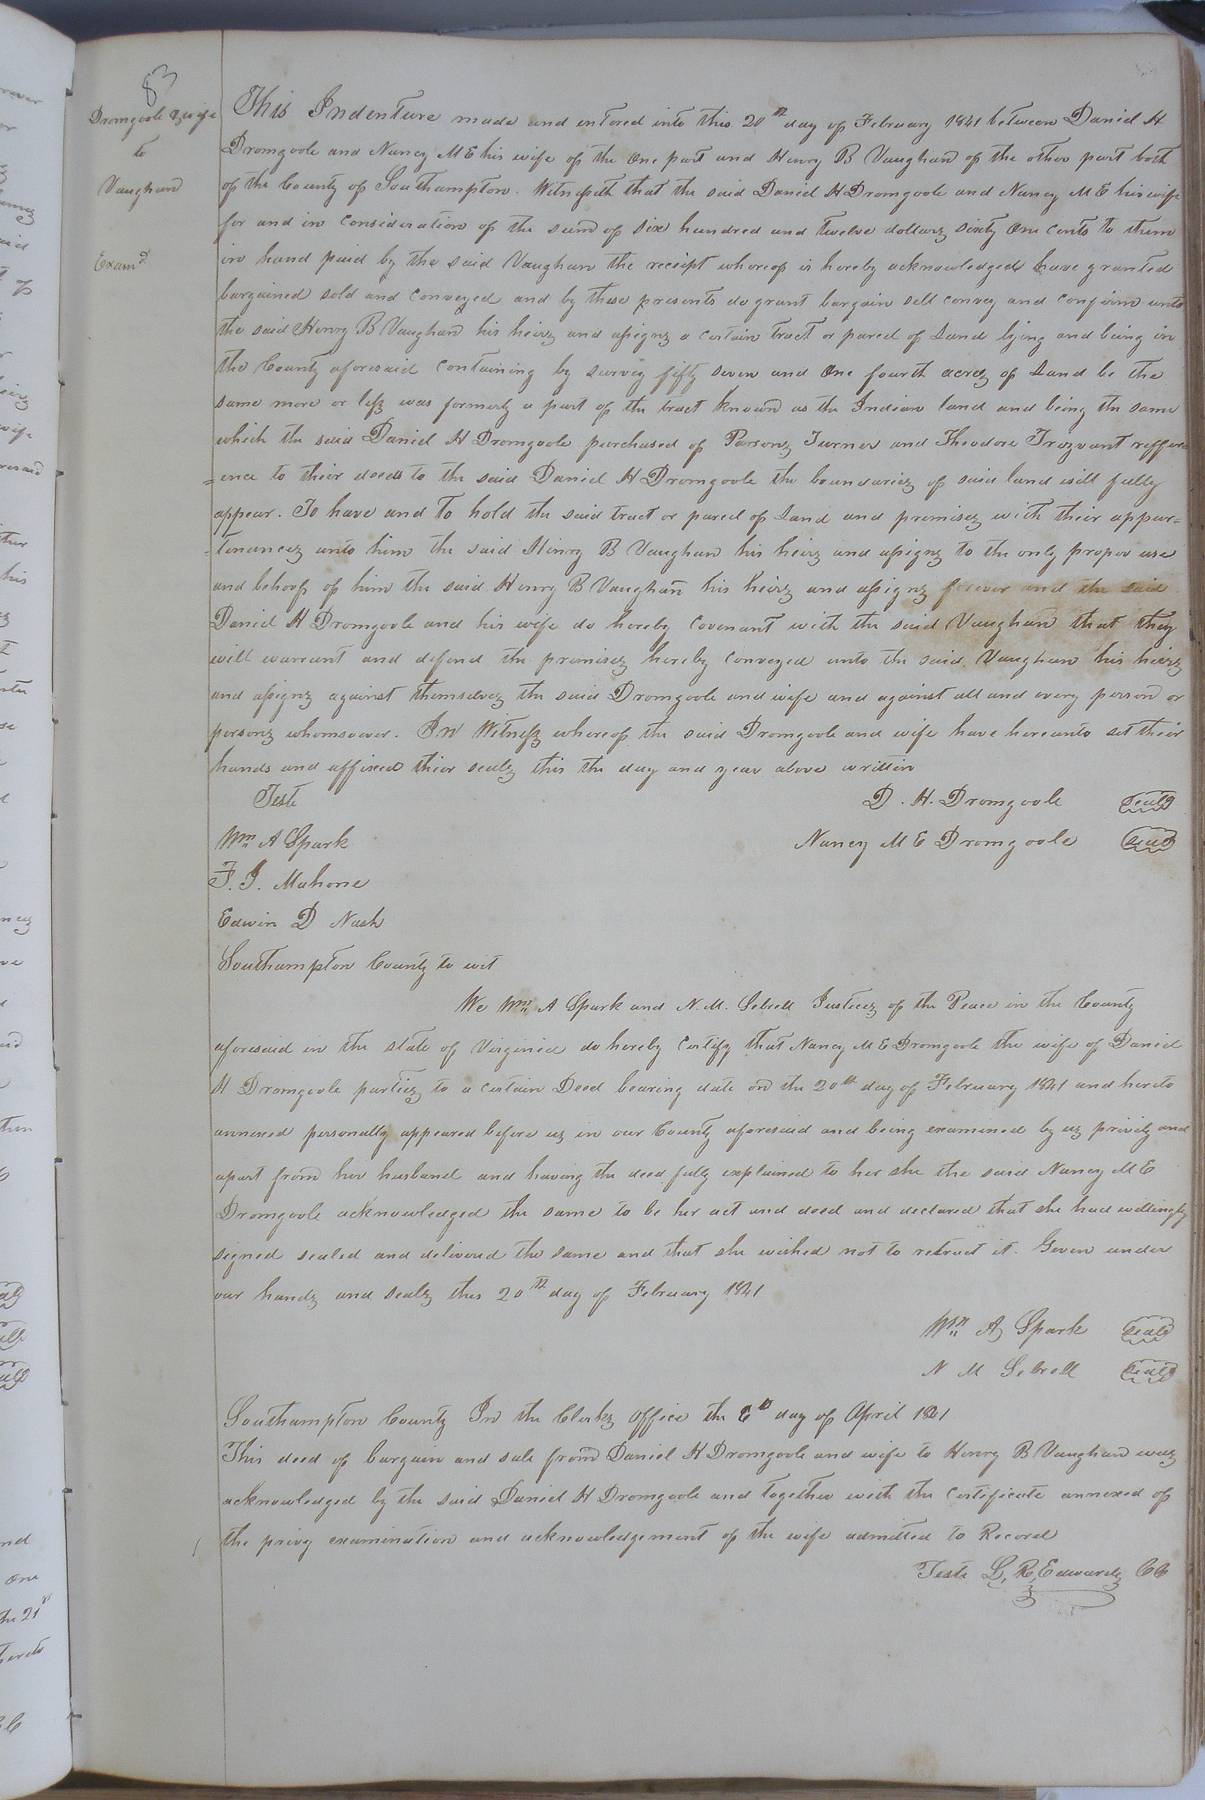 83
Dromgoole & wife
to
Vaughan
Examd
This Indenture made and entered into this 20th day of February 1841 between Daniel H
Dromgoole and Nancy M E his wife of the One part and Henry B Vaughan of the other part both
of the County of Southampton. Witnesseth that the said Daniel H Dromgoole and Nancy M E his wife
for and in Consideration of the sum of six hundred and twelve dollars sixty One cents to them
in hand paid by the said Vaughan the receipt whereof is hereby acknowledged have granted
bargained sold and Conveyed and by these presents do grant bargain sell convey and confirm unto
the said Henry B Vaughan his heirs and assigns a certain tract or parcel of Land lying and being in
the County aforesaid Containing by survey fifty seven and One fourth acres of Land be the
same more or less was formerly a part of the tract known as the Indian land and being the same
which the said Daniel H Dromgoole purchased of Parsons Turner and Theodore Trezvant reffer
=ence to their deeds to the said Daniel H Dromgoole the boundaries of said land will fully
appear. To have and to hold the said tract or parcel of Land and premises with their appur=
=tenances unto him the said Henry B Vaughan his heirs and assigns to the only proper use
and behoof of him the said Henry B Vaughan his heirs and assigns forever and the said
Daniel H Dromgoole and his wife do hereby Covenant with the said Vaughan that they
will warrant and defend the premises hereby Conveyed unto the said Vaughan his heirs
and assigns against themselves the said Dromgoole and wife and against all and every person or
persons whomsoever. In Witness whereof the said Dromgoole and wife have hereunto set their
hands and affixed their seals this the day and year above written
Teste D. H. Dromgoole Seal
Wm A Spark Nancy M E Dromgoole Seal
F. J. Mahone
Edwin D Nash
Southampton County to wit
We Wm A Spark and N. M. Sebrell Justices of the Peace in the County
aforesaid in the state of Virginia do hereby Certify that Nancy M E Dromgoole the wife of Daniel
H Dromgoole parties to a certain Deed bearing date on the 20th day of February 1841 and hereto
annexed personally appeared before us in our County aforesaid and being examined by us privily and
apart from her husband and having the deed fully explained to her she the said Nancy M E
Dromgoole acknowledged the same to be her act and deed and declared that she had willingly
signed sealed and delivered the same and that she wished not to retract it. Given under
our hands and seals this 20th day of February 1841
Wm A Spark Seal
N M Sebrell Seal
Southampton County In the Clerks Office the 6th day of April 1841
This deed of bargain and sale from Daniel H Dromgoole and wife to Henry B Vaughan was
acknowledged by the said Daniel H Dromgoole and together with the Certificate annexed of
the privy examination and acknowledgement of the wife admitted to Record
Teste L. R. Edwards CC